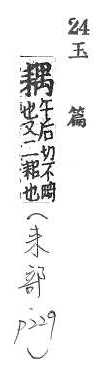 24玉篇
耦午后切不畸
也又二耜也
(耒部 p229)